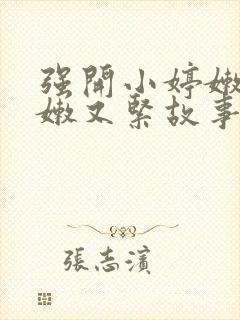 强開小婷嫩
嫩又緊故事
張志濱